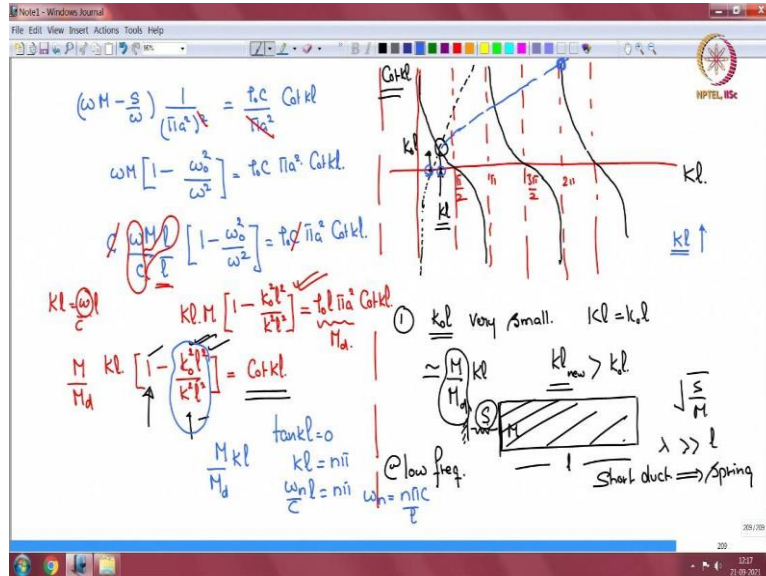 Note1 - Windows Journal
File Edit View Insert Actions Tools Help
NPTEL, IISc
(ωM - s/ω) 1/(πa²)² = ρ₀c/πa² Cot kl
ωM [1 - ω₀²/ω²] = ρ₀c πa² Cot kl.
c ωMl/c l [1 - ω₀²/ω²] = ρ₀c πa² Cot kl.
kl = ω/c l
kl. M [1 - k₀²l²/k²l²] = ρ₀l πa² Cot kl.
Md.
M/Md kl. [1 - k₀²l²/k²l²] = Cot kl.
M/Md kl
tan kl = 0
kl = nπ
ωn/c l = nπ
ωn = nπc/l
Cot kl
k₀l
kl
π/2
π
3π/2
2π
kl.
kl ↑
① k₀l very small. kl = k₀l
≃ M/Md kl
kl new > k₀l.
S
M
l
√S/M
λ >> l
@ low freq.
Short duct ⟹ Spring
209/209
209
12:17
21-09-2021